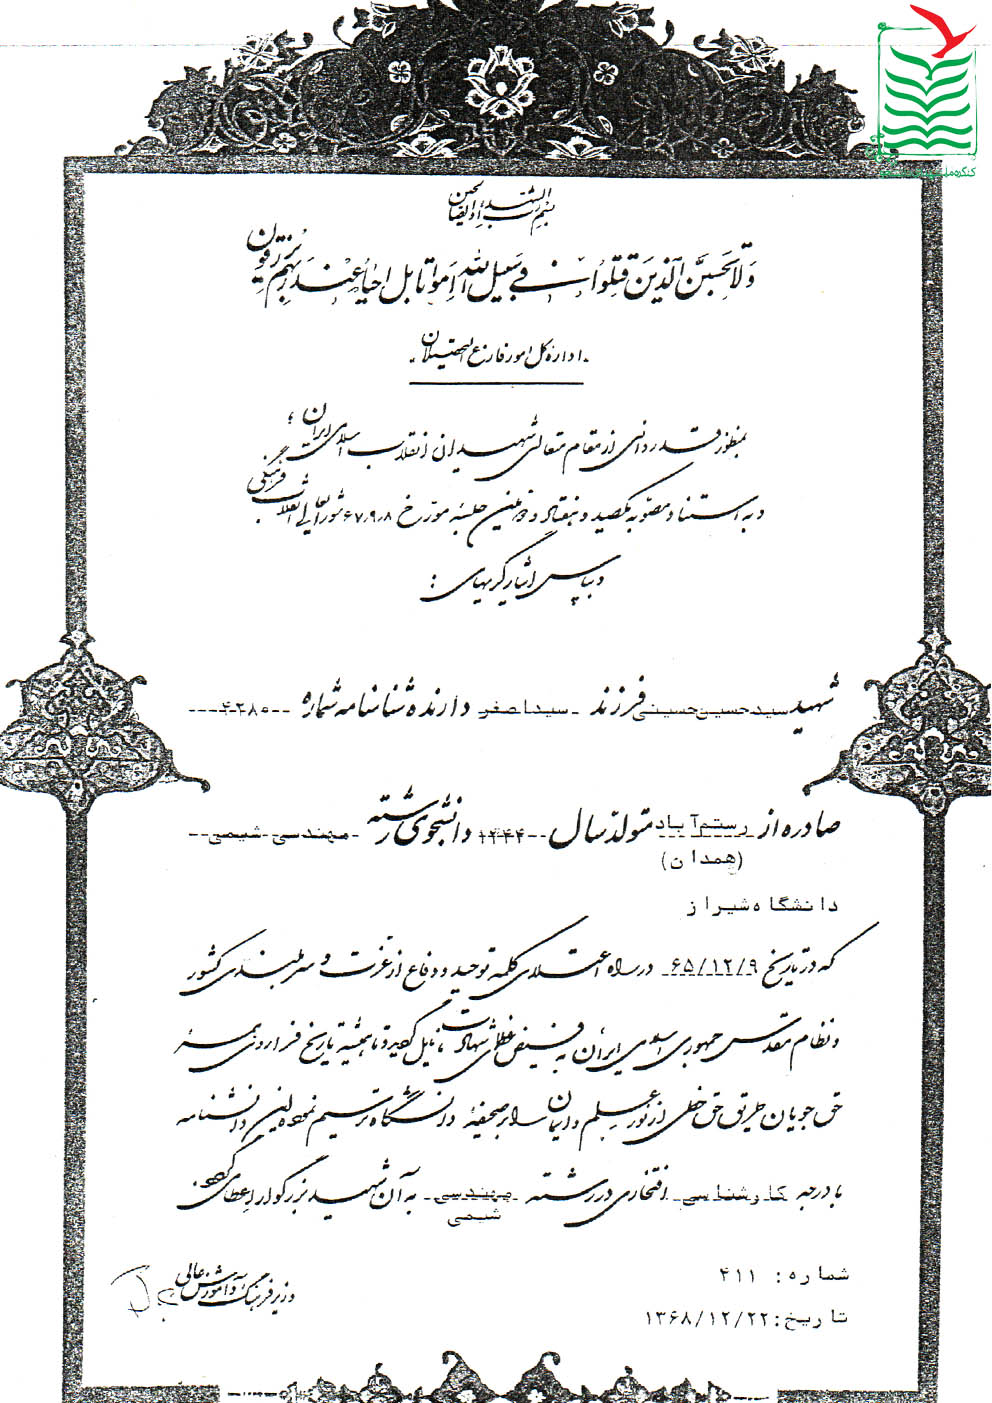 بسم رب الشهداء و الصالحین
وَلا تَحْسَبَنَّ الَّذینَ قُتِلُوا فی سَبیلِ اللّهِ اَمواتاً بَل اَحیاءٌ عِندَ رَبِّهِم یُرزَقون
اداره کل امور فارغ التحصیلان
بمنظور قدردانی از مقام متعالی شهیدان انقلاب اسلامی ایران ؛
و به استناد مصوبه یکصد و هفتاد و جلسه مورخ ۶۷٫۹٫۸ شورای عالی انقلاب فرهنگی
و بپاس ایثارگریهای :
شهید سید حسین حسینی فرزند سید اصغر دارنده شناسنامه شماره ۴۲۸۰
صادره از رستم آباد متولد سال ۱۳۴۴ دانشجوی رشته مهندسی شیمی
(همدان)
دانشگاه شیراز
که در تاریخ ۶۵/۱۲/۹ در راه اعتلای کلمه توحید و دفاع از عزت و سربلندی کشور
و نظام مقدس جمهوری اسلامی ایران به فیض عظمای شهادت نایل گردیده تا همیشه تاریخ فرا روی همه
حق جویان طریق حق خطی از نور علم و ایمان را بر صحیفه دانشگاه ترسیم نموده این دانشنامه
با درجه کارشناسی افتخاری در رشته مهندسی شیمی به آن شهید بزرگوار اعطا می گردد.
شماره: ۴۱۱
تاریخ: ۱۳۶۸/۱۲/۲۲
وزیر فرهنگ و آموزش عالی